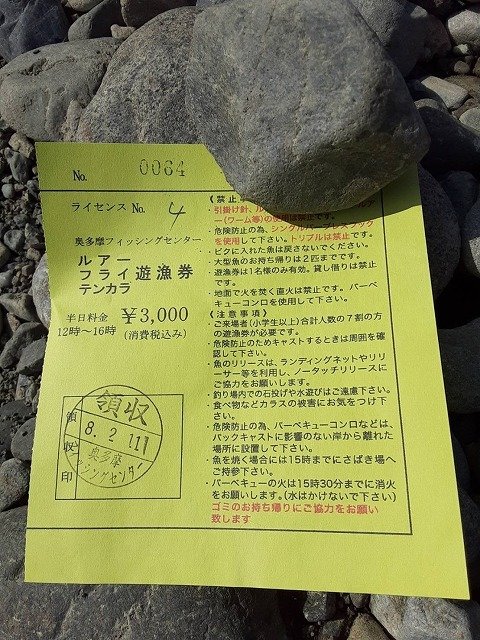 No. 0064
ライセンス No. 4
奥多摩フィッシングセンター
ルアー
フライ 遊漁券
テンカラ
半日料金 ¥3,000
12時〜16時 (消費税込み)
領収印
領収
8.2.11
奥多摩
フィッシングセンター
(禁止
・引掛け針、
ー(ワーム等)の使用は禁止です。
・危険防止の為、シングルバーブレスフック
を使用して下さい。トリプルは禁止です。
・ビクに入れた魚は戻さないでください。
・大型魚のお持ち帰りは2匹までです。
・遊漁券は1名様のみ有効。貸し借りは禁止
です。
・地面で火を焚く直火は禁止です。バーベ
キューコンロを使用して下さい。
(注意事項)
・ご来場者(小学生以上)合計人数の7割の方
の遊漁券が必要です。
・危険防止のためキャストするときは周囲を確
認して下さい。
・魚のリリースは、ランディングネットやリリ
ーサー等を利用し、ノータッチリリースに
ご協力をお願いします。
・釣り場内での石投げや水遊びはご遠慮下さい。
・食べ物などカラスの被害にお気をつけ下
さい。
・危険防止の為、バーベキューコンロなどは、
バックキャストに影響のない岸から離れた
場所に設置して下さい。
・魚を焼く場合には15時までにさばき場へ
ご持参下さい。
・バーベキューの火は15時30分までに消火
をお願いします。(水はかけないで下さい)
ゴミのお持ち帰りにご協力をお願い
致します